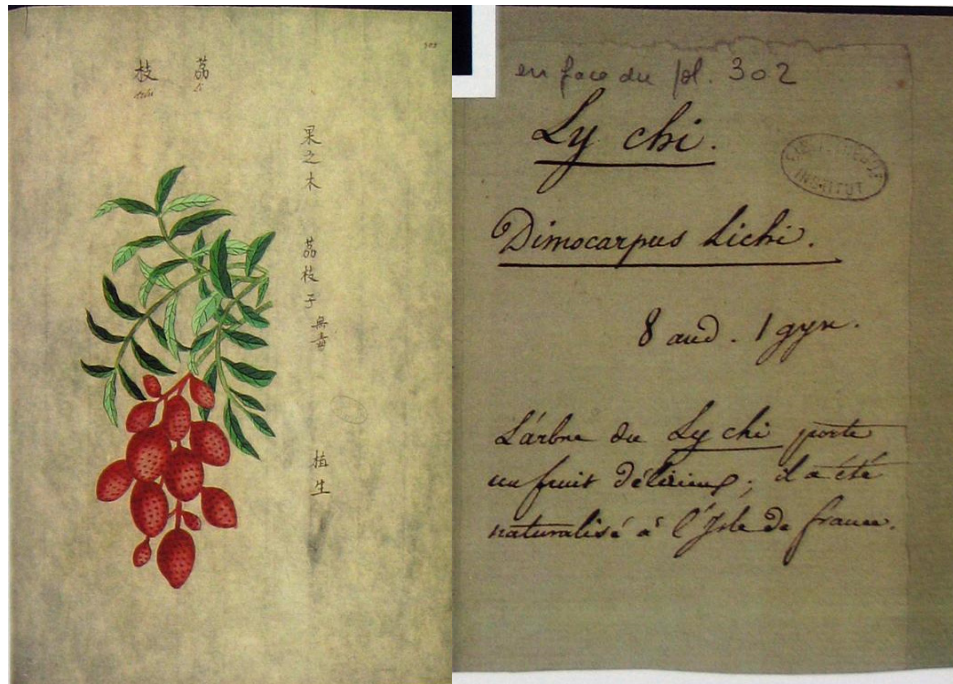 302
枝 荔
果之木 荔枝子無毒 植生
en face du pl. 302
Ly chi.
Dimocarpus Lichi.
8 and. 1 gyn.
L'arbre du Ly chi porte
un fruit délicieux; il a été
naturalisé à l'Isle de france.
INSTITUT